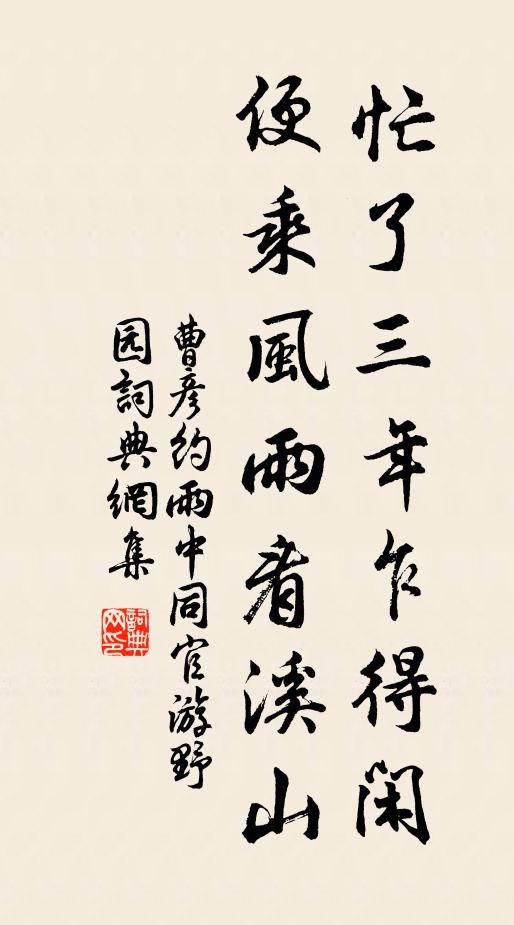 忙了三年乍得闲
便乘風雨看溪山
曹彦约雨中同官游野
园詞典網集
詞典网印